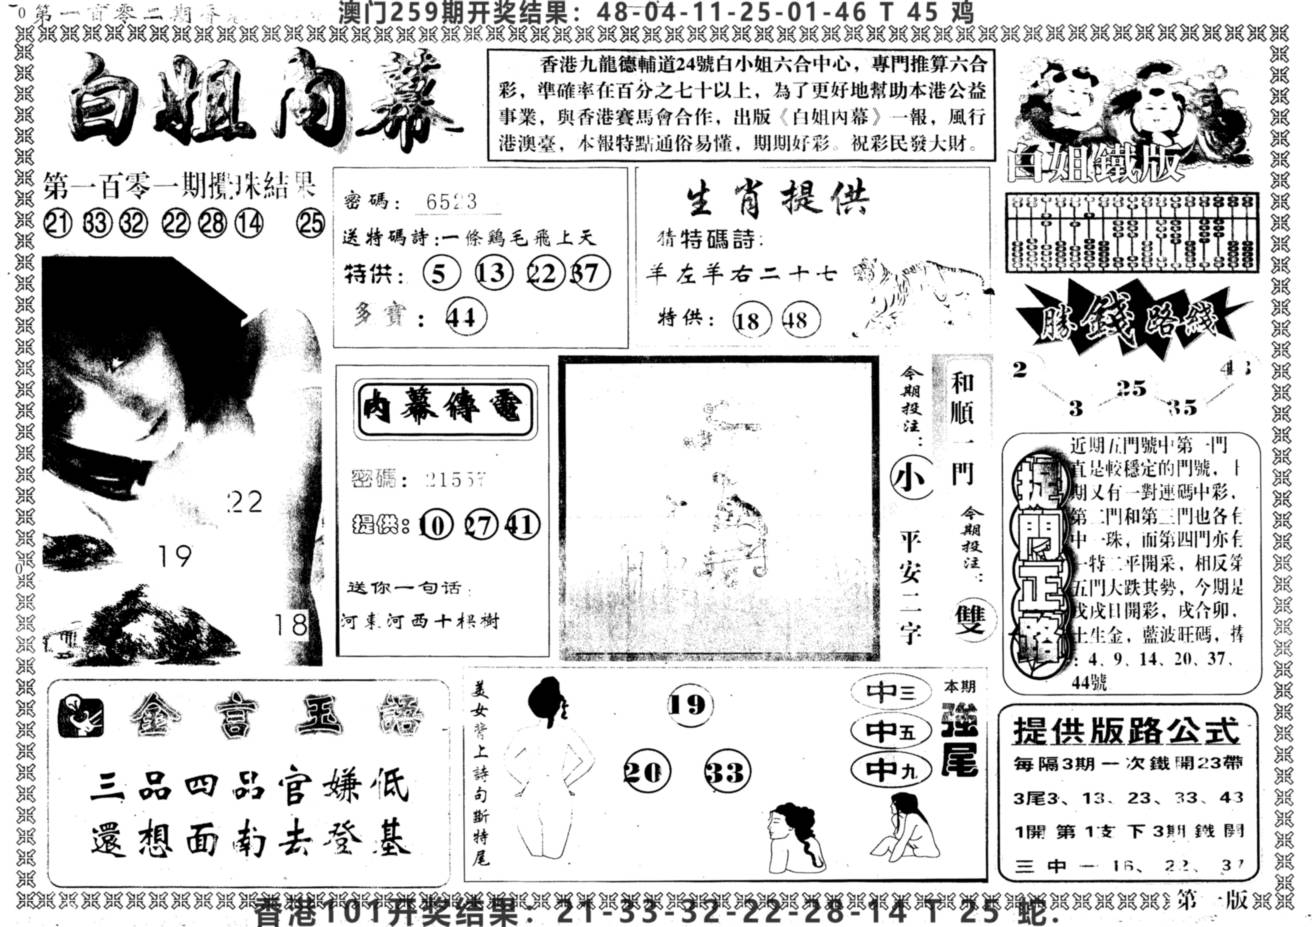 第一百零二期香
澳门259期开奖结果：48-04-11-25-01-46 T 45 鸡
白姐内幕
香港九龍德輔道24號白小姐六合中心，專門推算六合
彩，準確率在百分之七十以上，為了更好地幫助本港公益
事業，與香港賽馬會合作，出版《白姐內幕》一報，風行
港澳臺，本報特點通俗易懂，期期好彩。祝彩民發大財。
白姐鐵版
第一百零一期攪珠結果
21 33 32 22 28 14 25
密碼：6523
送特碼詩：一條鷄毛飛上天
特供：5 13 22 37
多寶：44
生肖提供
猜特碼詩：
羊左羊右二十七
特供：18 48
勝錢路线
2 3 25 35 43
22
19
18
內幕傳電
密碼：21557
提供：10 27 41
送你一句话：
河東河西十棵樹
今期投注：小
平安二字
和順一門
今期投注：雙
捉門正路
近期五門號中第一門
直是較穩定的門號，上
期又有一對連碼中彩，
第二門和第三門也各有
中一珠，而第四門亦有
一特二平開采，相反第
五門大跌其勢，今期是
戊戌日開彩，戌合卯，
土生金，藍波旺碼，捧
：4、9、14、20、37、
44號
金言玉語
三品四品官嫌低
還想面南去登基
美女背上詩句斷特尾
19
20 33
中三
中五
中九
本期強尾
提供版路公式
每隔3期一次鐵開23帶
3尾3、13、23、33、43
1開第1支下3期鐵開
三中一16、22、37
第一版
香港101开奖结果：21-33-32-22-28-14 T 25 蛇.